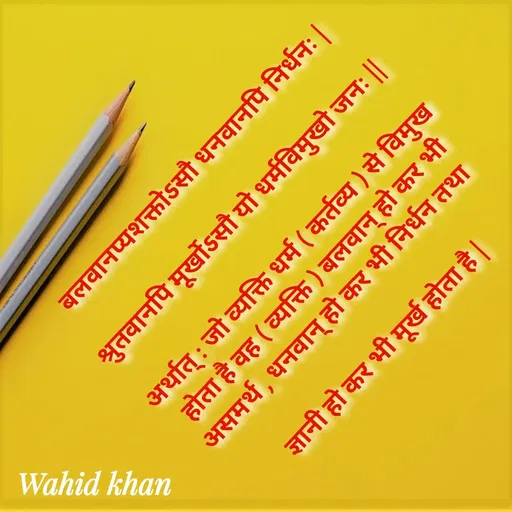 बलवानप्यशक्तोऽसौ धनवानपि निर्धनः |
श्रुतवानपि मूर्खोऽसौ यो धर्मविमुखो जनः ||
अर्थात् : जो व्यक्ति धर्म ( कर्तव्य ) से विमुख
होता है वह ( व्यक्ति ) बलवान् हो कर भी
असमर्थ , धनवान् हो कर भी निर्धन तथा
ज्ञानी हो कर भी मूर्ख होता है |
Wahid khan